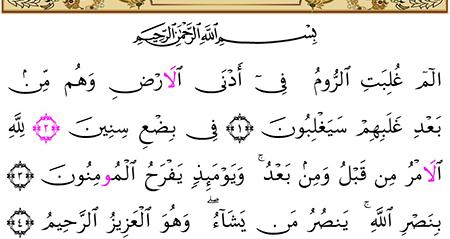 بِسْمِ اللَّهِ الرَّحْمَٰنِ الرَّحِيمِ
الٓمٓ غُلِبَتِ الرُّومُ فِىٓ أَدْنَى الَارْضِ وَهُم مِّنۢ
بَعْدِ غَلَبِهِمْ سَيَغْلِبُونَ ﴿١﴾ فِى بِضْعِ سِنِينَ ﴿٢﴾ لِلَّهِ
الَامْرُ مِن قَبْلُ وَمِنۢ بَعْدُ ۚ وَيَوْمَئِذٍ يَفْرَحُ الْمُومِنُونَ ﴿٣﴾
بِنَصْرِ اللَّهِ ۚ يَنصُرُ مَن يَشَآءُ ۖ وَهُوَ الْعَزِيزُ الرَّحِيمُ ﴿٤﴾